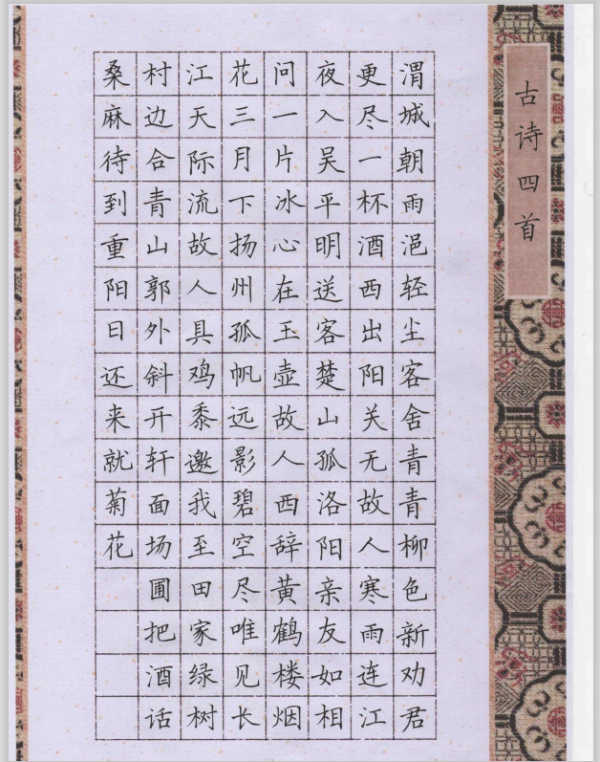 古诗四首
渭城朝雨浥轻尘客舍青青柳色新劝君
更尽一杯酒西出阳关无故人寒雨连江
夜入吴平明送客楚山孤洛阳亲友如相
问一片冰心在玉壶故人西辞黄鹤楼烟
花三月下扬州孤帆远影碧空尽唯见长
江天际流故人具鸡黍邀我至田家绿树
村边合青山郭外斜开轩面场圃把酒话
桑麻待到重阳日还来就菊花